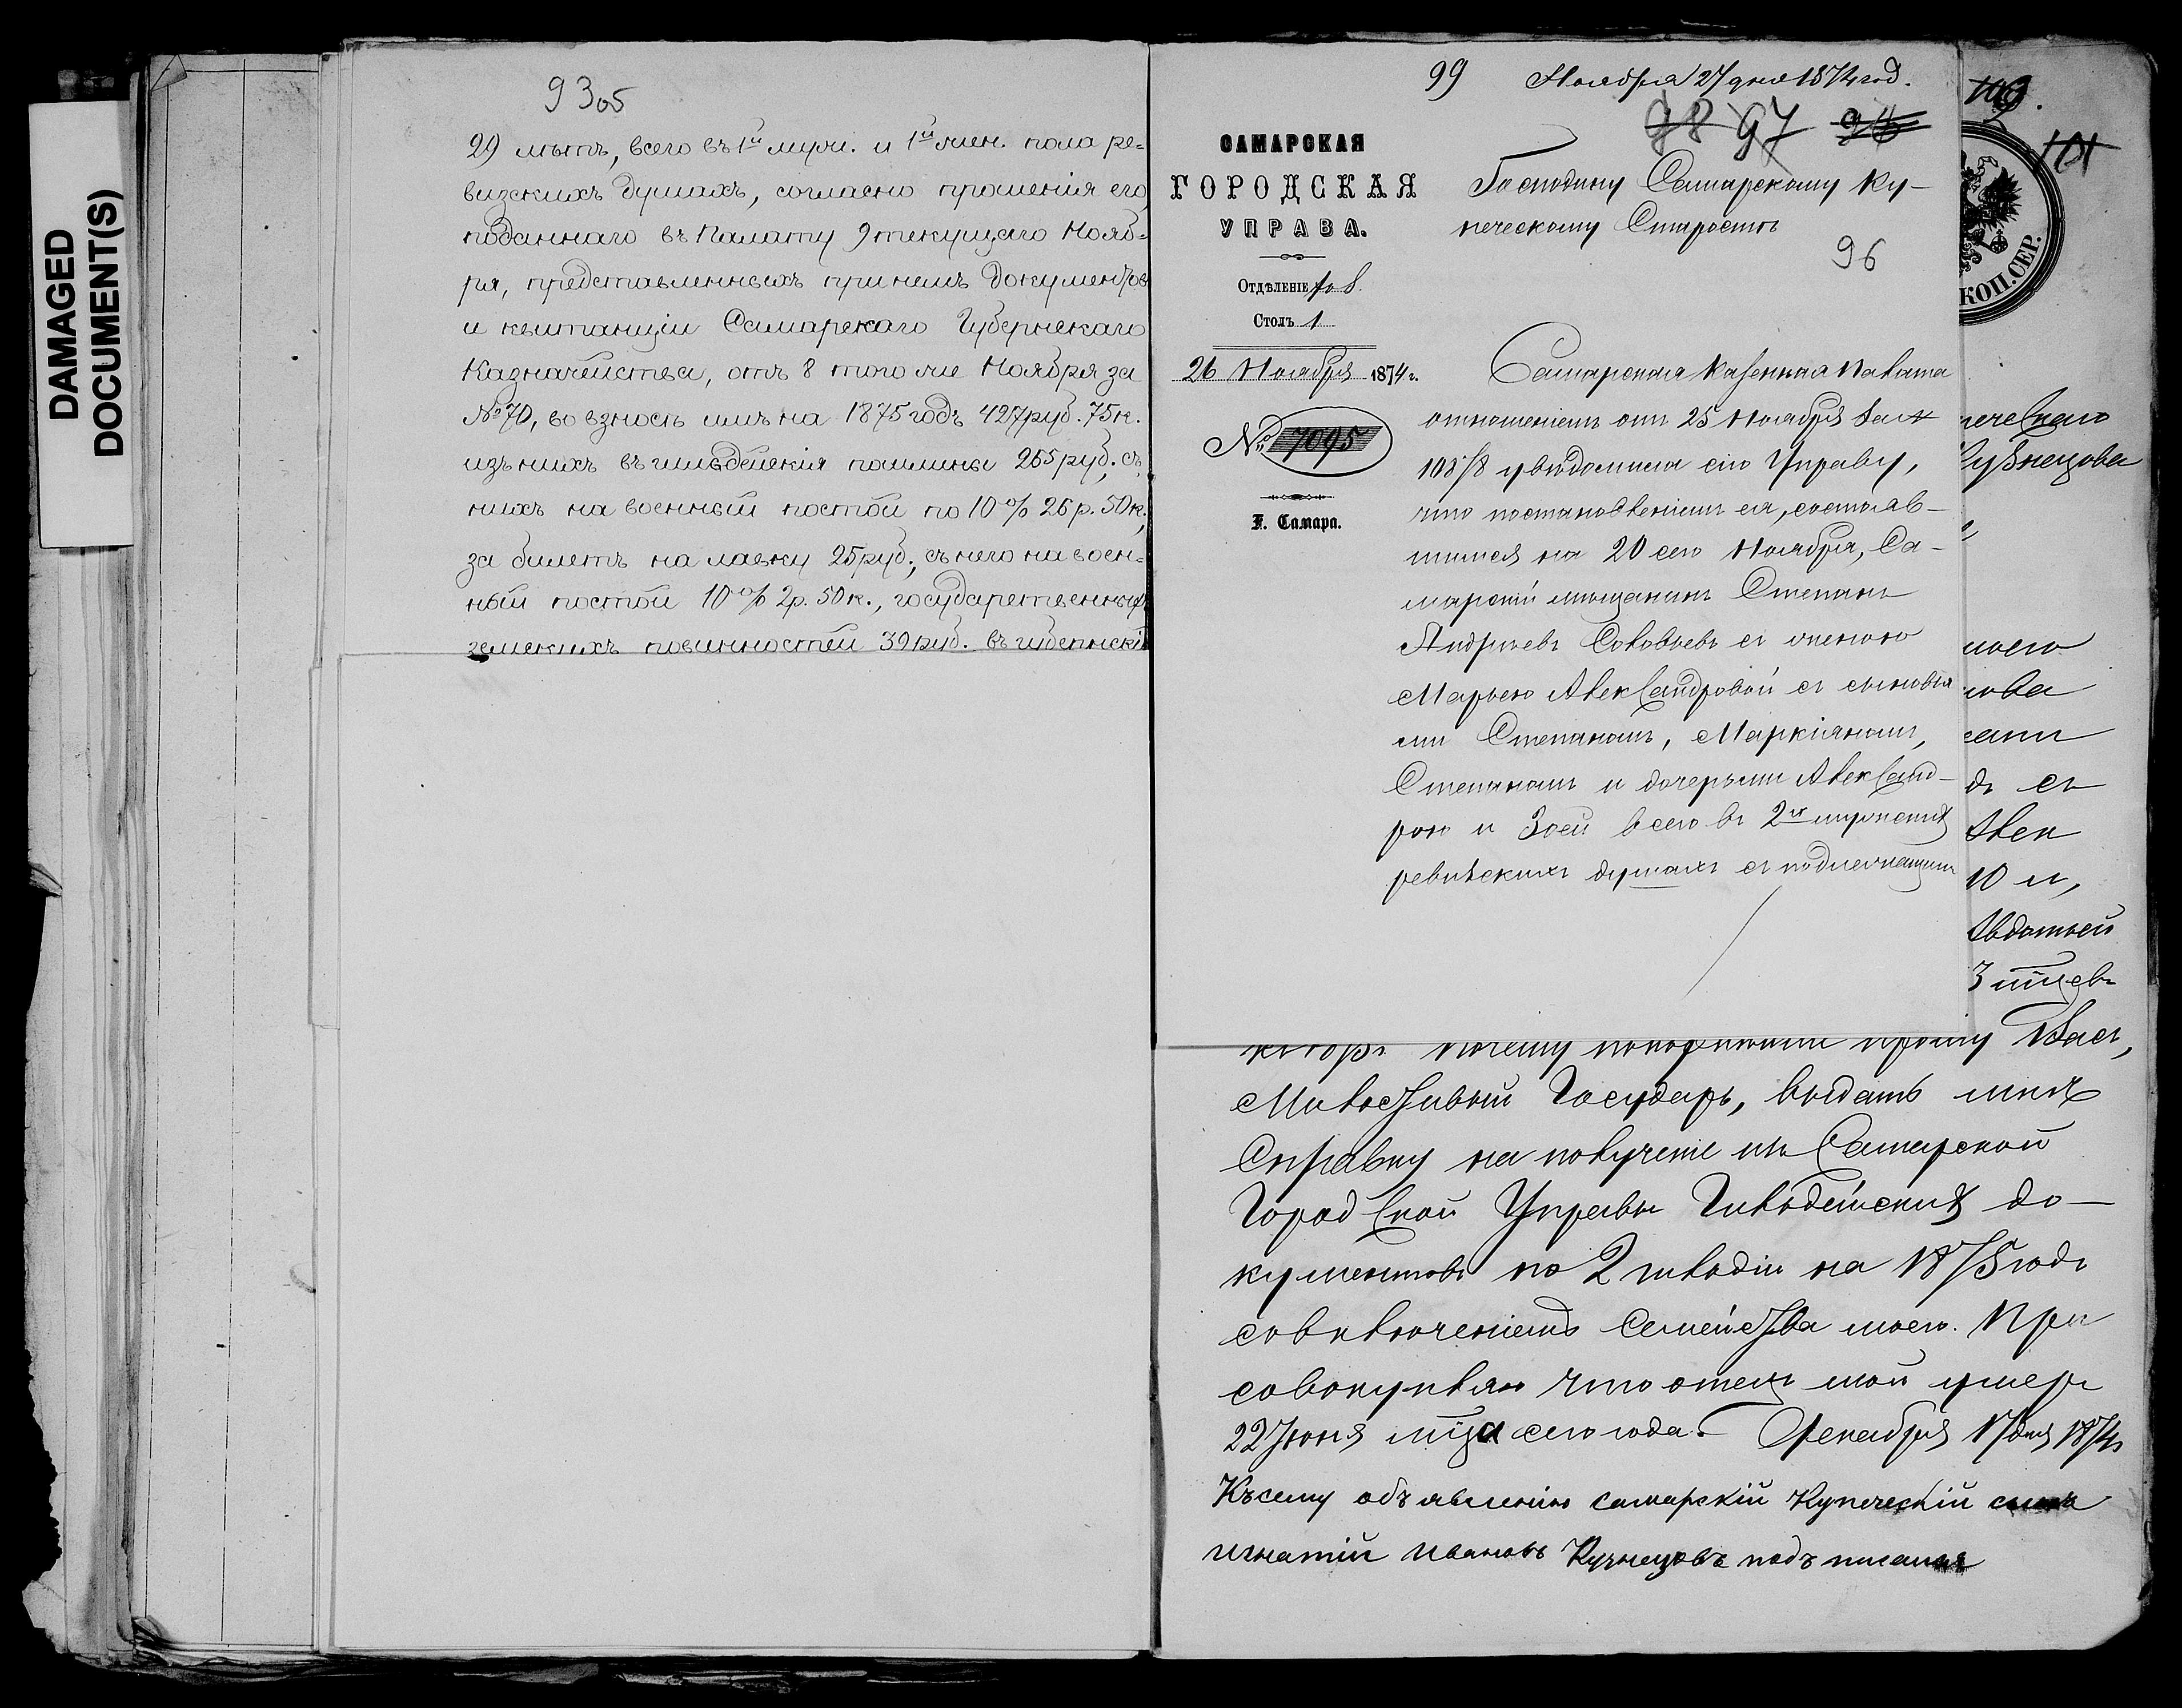 DAMAGED
DOCUMENT(S)
93об
29 лѣтъ, всего въ 1й муж. и 1й жен. пола ре=
визскихъ душахъ, согласно прошенія его,
поданнаго въ Палату 9 текущаго Нояб=
ря, представленныхъ при немъ документов
и квитанціи Самарскаго Губернскаго
Казначейства, отъ 8 того же Ноября за
№ 70, во взносѣ имъ на 1875 годъ 427 руб. 75 к.
изъ нихъ въ гильдейскія пошлины 265 руб., съ
нихъ на военный постой по 10% 26 р. 50 к.,
за билетъ на лавку 25 руб., съ него на воен=
ный постой 10% 2 р. 50 к., государственных
земскихъ повинностей 39 руб. въ губернскій
99 Ноября 27 дня 1874 год.
98 97 96
САМАРСКАЯ
ГОРОДСКАЯ
УПРАВА.
Отдѣленіе
Столъ 1
26 Ноября 1874 г.
№ 7095
Г. Самара.
Господину Самарскому Ку-
печескому Старостѣ
96
Самарская Казенная Палата
отношеніемъ отъ 25 Ноября за №
10878 увѣдомила сію Управу,
что постановленіемъ ея, состояв-
шимся на 20 сего Ноября, Са-
марскій мѣщанинъ Степанъ
Андреевъ Соловьевъ съ женою
Марьею Александровой съ сыновья
ми Степаномъ, Маркіяномъ,
Степаномъ и дочерьми Александ-
рою и Зоей всего въ 2хъ мужскихъ
ревизскихъ душахъ съ подлежащимъ
109.
101
КОП. СЕР.
печескаго
Кузнецова
моего
нова
съ
Алек
10 м,
Авдотьей
3 мцевъ
почему покорнѣйше прошу Васъ,
Милостивый Государь, выдать мнѣ
Справку на полученіе изъ Самарской
Городской Управы Гильдейскихъ до-
кументовъ по 2 гильдіи на 1875 годъ
совключеніемъ Семейства моего. При
совокупляю что отецъ мой умеръ
22 Іюня мца сего года. Декабря 17 дня 1874
Къ сему объявленію самарскій Купеческій сынъ
игнатій ивановъ Кузнецовъ подъписался